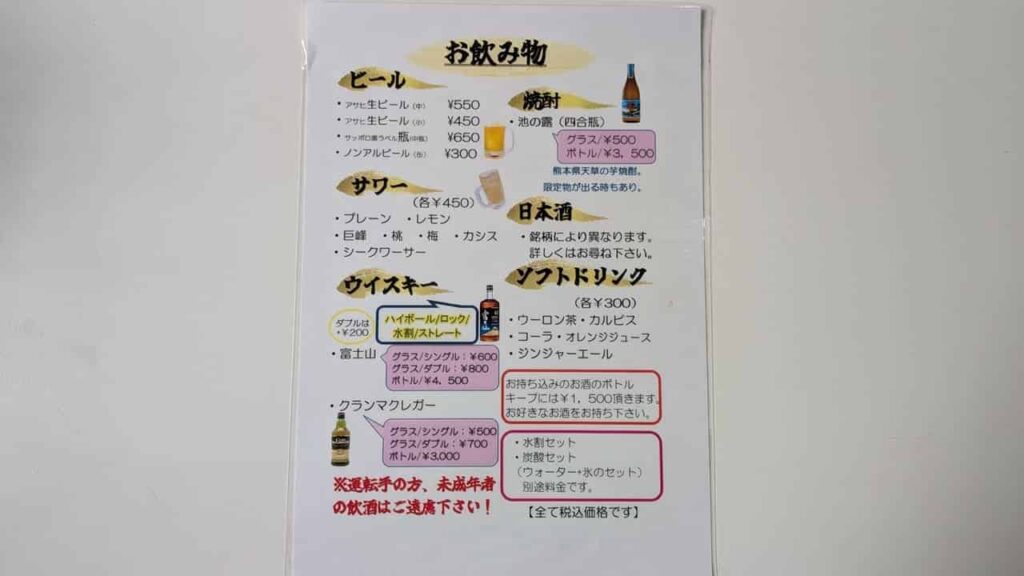 お飲み物
ビール
・アサヒ生ビール（中） ¥550
・アサヒ生ビール（小） ¥450
・サッポロ黒ラベル瓶(中瓶) ¥650
・ノンアルビール（缶） ¥300
サワー
（各¥450）
・プレーン ・レモン
・巨峰 ・桃 ・梅 ・カシス
・シークワーサー
ウイスキー
ダブルは
+¥200
ハイボール/ロック/
水割/ストレート
・富士山
グラス/シングル：¥600
グラス/ダブル：¥800
ボトル/¥4，500
・クランマクレガー
グラス/シングル：¥500
グラス/ダブル：¥700
ボトル/¥3,000
※運転手の方、未成年者
の飲酒はご遠慮下さい！
焼酎
・池の露（四合瓶）
グラス/¥500
ボトル/¥3，500
熊本県天草の芋焼酎。
限定物が出る時もあり。
日本酒
・銘柄により異なります。
詳しくはお尋ね下さい。
ソフトドリンク
（各¥300）
・ウーロン茶・カルピス
・コーラ・オレンジジュース
・ジンジャーエール
お持ち込みのお酒のボトル
キープには¥1，500頂きます。
お好きなお酒をお持ち下さい。
・水割セット
・炭酸セット
（ウォーター+氷のセット）
別途料金です。
【全て税込価格です】